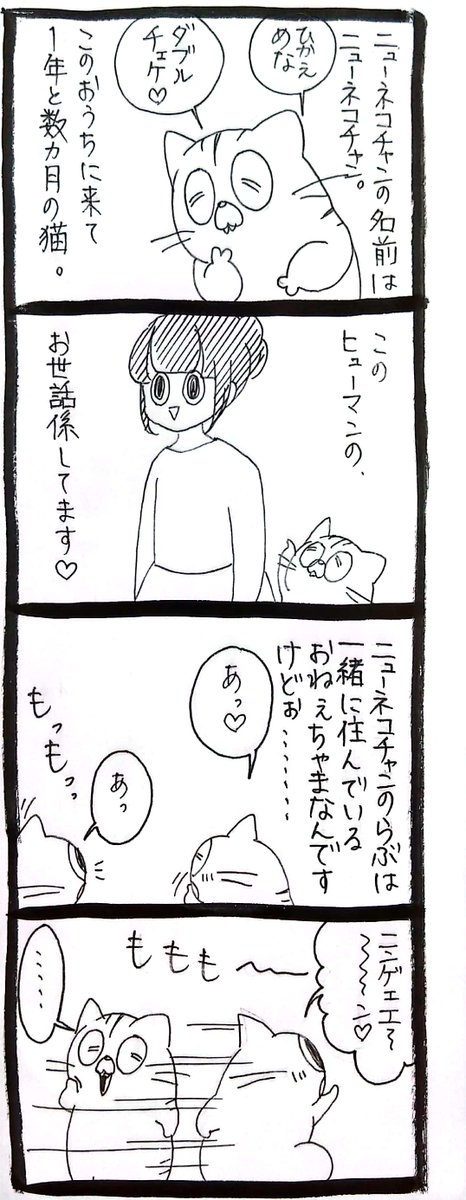 ニューネコチャンの名前は
ニューネコチャン。
ひかえ
めな
ダブル
チェケ♡
このおうちに来て
1年と数カ月の猫。
この
ヒューマンの、
お世話係してます♡
ニューネコチャンのらぶは
一緒に住んでいる
おねぇちゃまなんです
けどぉ………
あっ♡
あっ
もっもっっ
ニンゲェエ〜
〜〜〜ン♡
ももも〜
‥‥‥